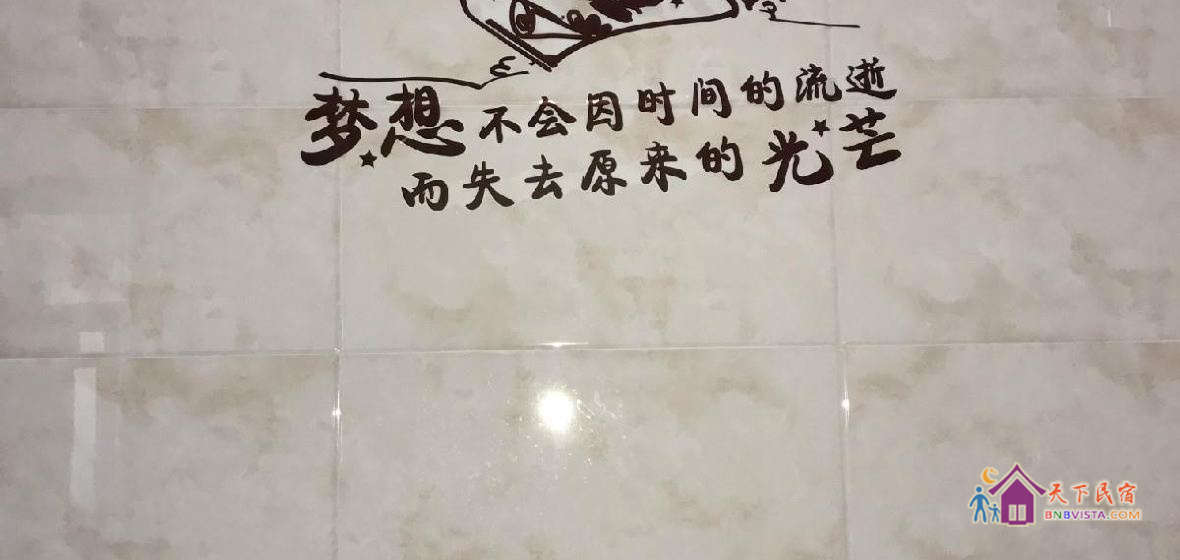 梦想不会因时间的流逝
而失去原来的光芒
天下民宿
BNBVISTA.COM